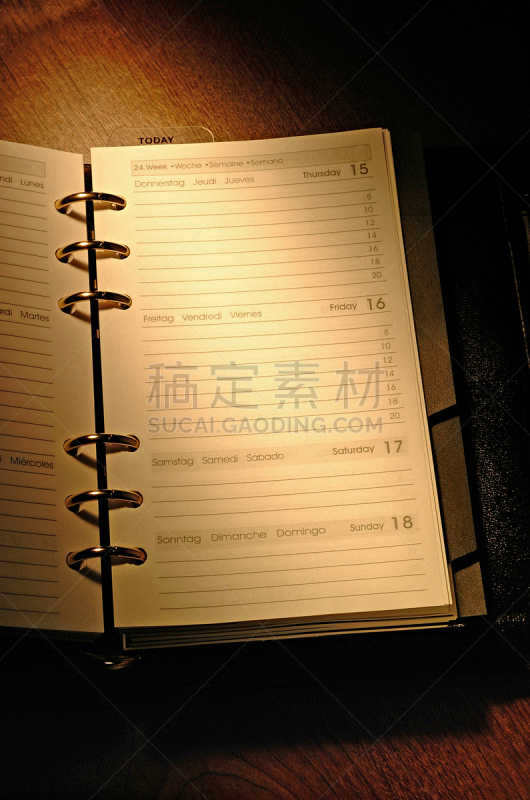 TODAY
24.Week •Woche •Semaine •Semana
ndi Lunes
Donnerstag Jeudi Jueves Thursday 15
8
10
12
14
16
18
20
ardi Martes
Freitag Vendredi Viernes Friday 16
8
10
12
14
16
18
20
稿定素材
SUCAI.GAODING.COM
i Miércoles
Samstag Samedi Sábado Saturday 17
Sonntag Dimanche Domingo Sunday 18